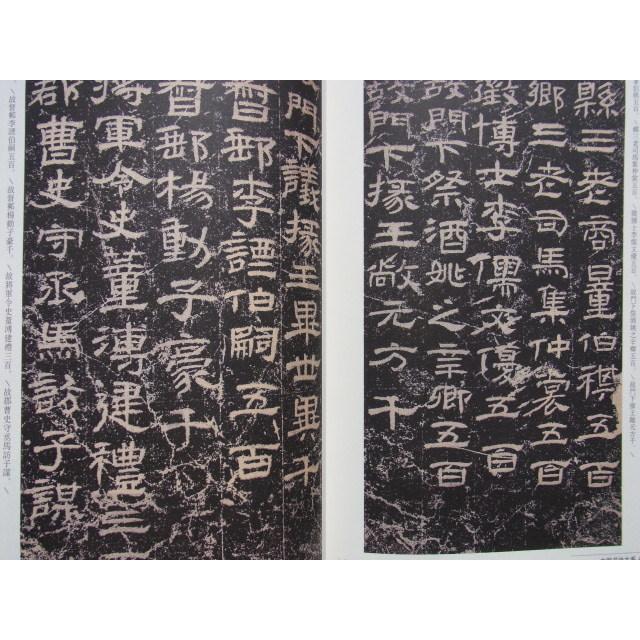 縣三老商量伯祺五百
鄉三老司馬集仲裳五百
徵博士李儒文優五百
故門下祭酒姚之辛卿五百
故門下掾王敞元方千
門下議掾王畢世異千
督郵李諲伯嗣五百
督郵楊動子豪千
將軍令史董溥建禮三
郡曹史守丞馬訪子謀
\故督郵李諲伯嗣五百。\故督郵楊動子豪千。\故將軍令史董溥建禮三百。\故郡曹史守丞馬訪子謀。\